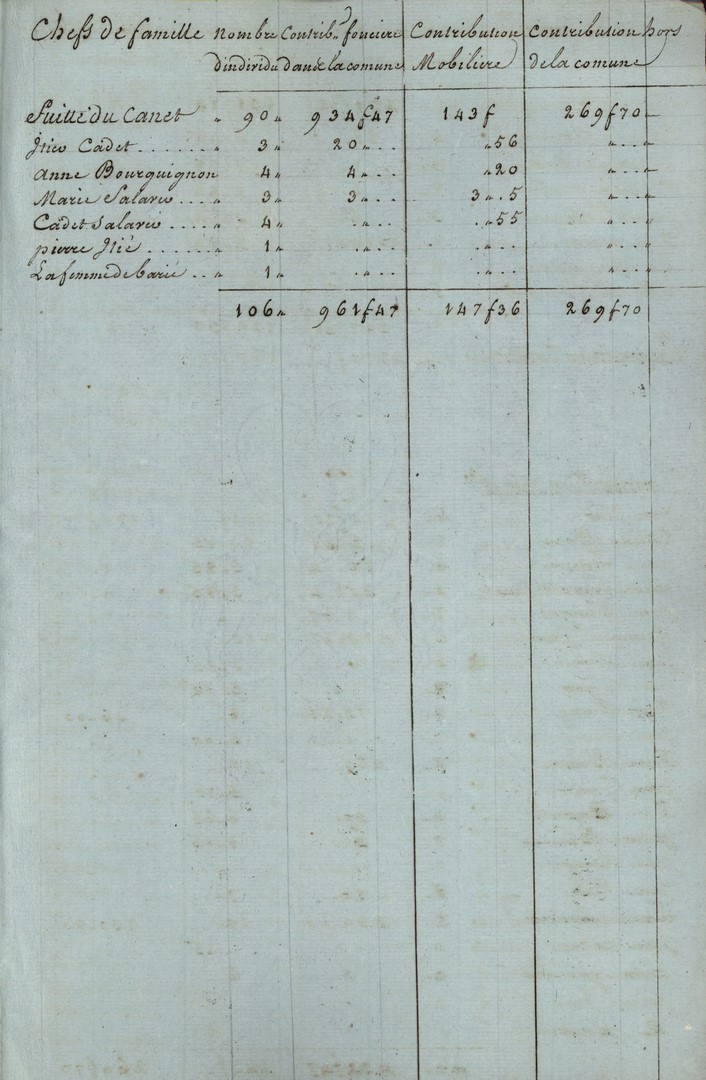 Chefs de famille nombre Contrib.n fonciere Contribution Contribution hors
d'individu dans la comune Mobiliere de la comune
Suitte du Canet „ 90„ 934f47 143f 269f70
Itié Cadet . . . . . . . „ 3„ 20„ . . „56 „ . . „
anne Bourguignon 4„ 4„ . . „20 „ . . „
Marie Salarié . . . . „ 3„ 3„ . . 3„.5 „ . . „
Cadet Salarié . . . . „ 4„ . „ . . . „55 „ . . „
pierre Itié . . . . . . „ 1„ . „ . . . „ . . „ . . „
La femme de barié . . „ 1„ . „ . . . „ . . „ . . . „
106„ 961f47 147f36 269f70